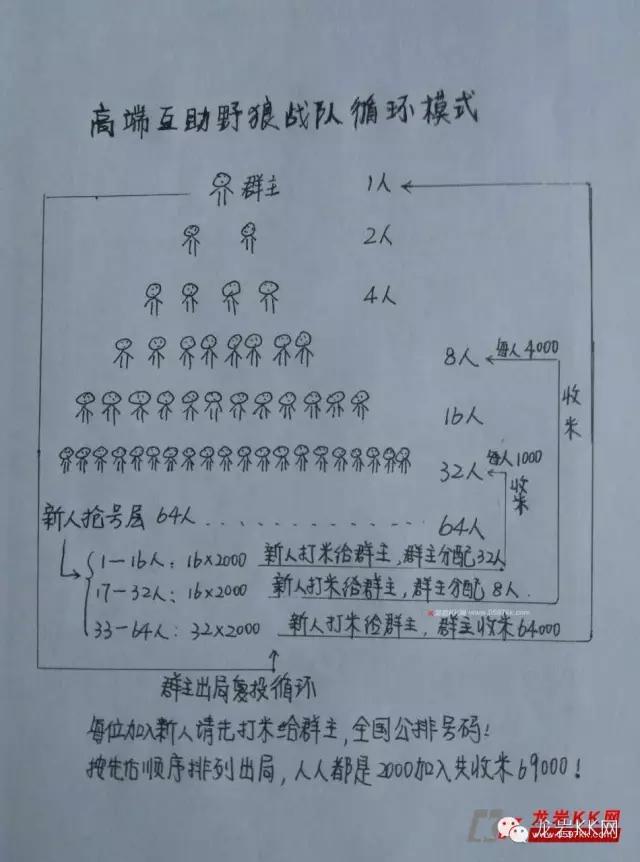 高端互助野狼战队循环模式
群主 1人
2人
4人
8人 每人4000
16人
收米
32人 每人1000
收米
新人抢号层64人 64人
1-16人:16×2000 新人打米给群主,群主分配32人
17-32人:16×2000 新人打米给群主,群主分配8人.
33-64人:32×2000 新人打米给群主,群主收米64000
群主出局复投循环
每位加入新人请先打米给群主,全国公排号码!
按先后顺序排列出局,人人都是2000加入先收米69000!
龙岩KK网 www.0597kk.com
龙岩KK网
龙岩KK网
www.0597KK.com